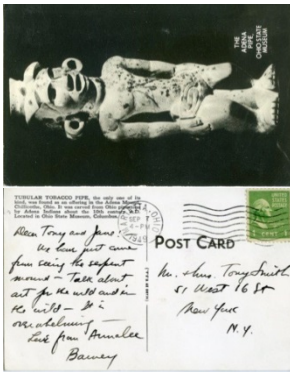 THE
ADENA
PIPE,
OHIO STATE
MUSEUM
TUBULAR TOBACCO PIPE, the only one of its
kind, was found as an offering in the Adena Mound,
Chillicothe, Ohio. It was carved from Ohio
by Adena Indians about the 13th century, A.D.
Located in Ohio State Museum, Columbus,
Dear Tony and Jane,
We have just come
from seeing the serpent
mound — Talk about
art for the wild and in
the wild — It is
overwhelming —
Love from Annalee
Barney
OHIO
SEP 7
4-PM
POST CARD
1 CENT 1
Mr. & Mrs. Tony Smith
51 West 16 St
New York
N.Y.